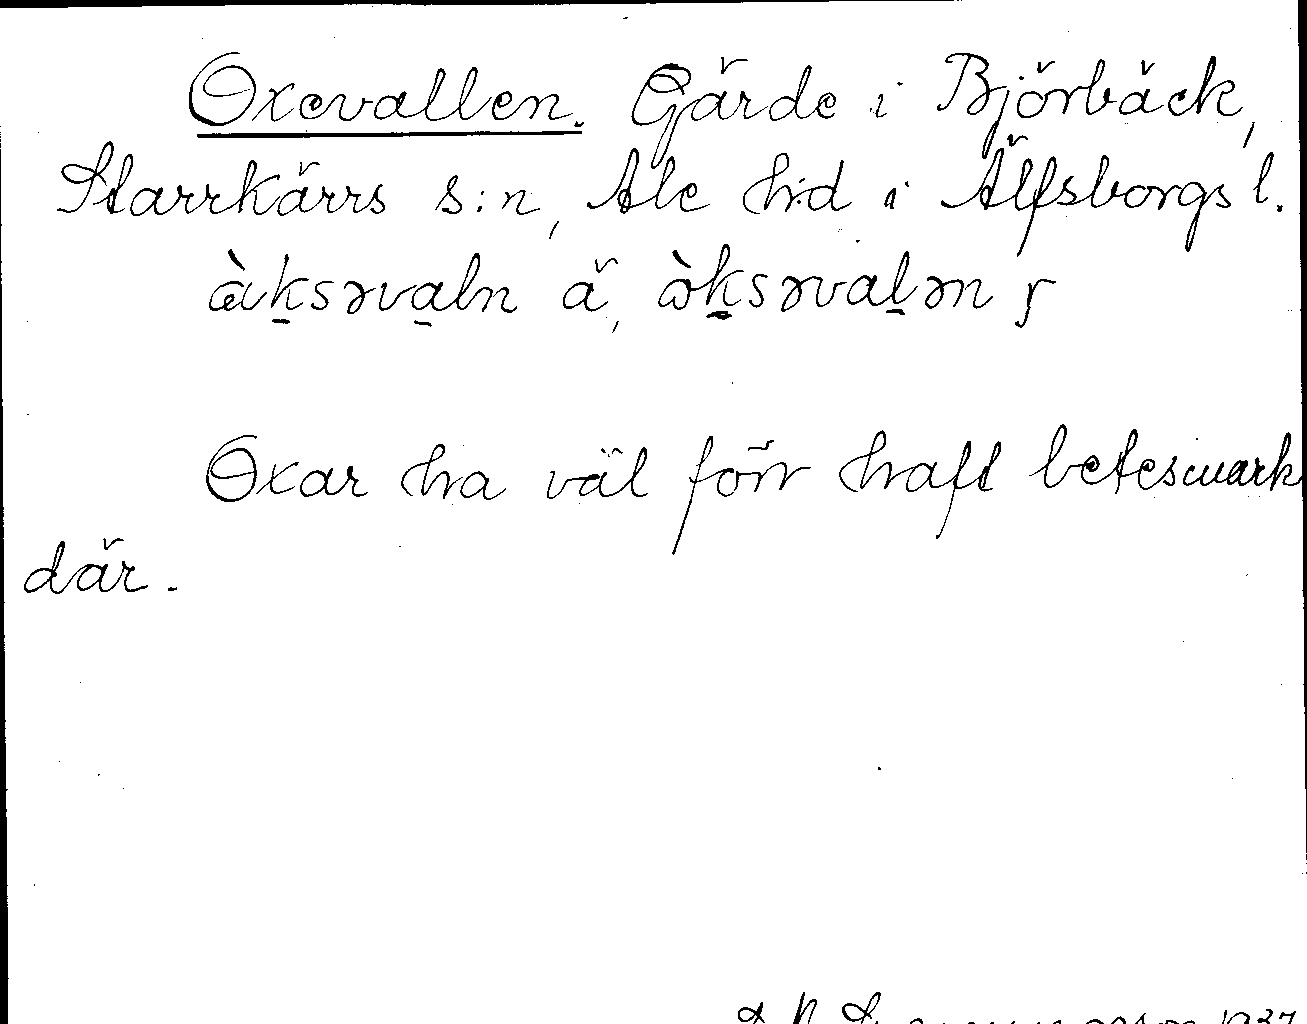 Oxevallen. Gärde i Björbäck,
Starrkärrs s:n, Ale h:d i Älfsborgs l.
ὰksəvaln ä, ɔ̀ksəvalən y
Oxar ha väl förr haft betesmark
där.
1937